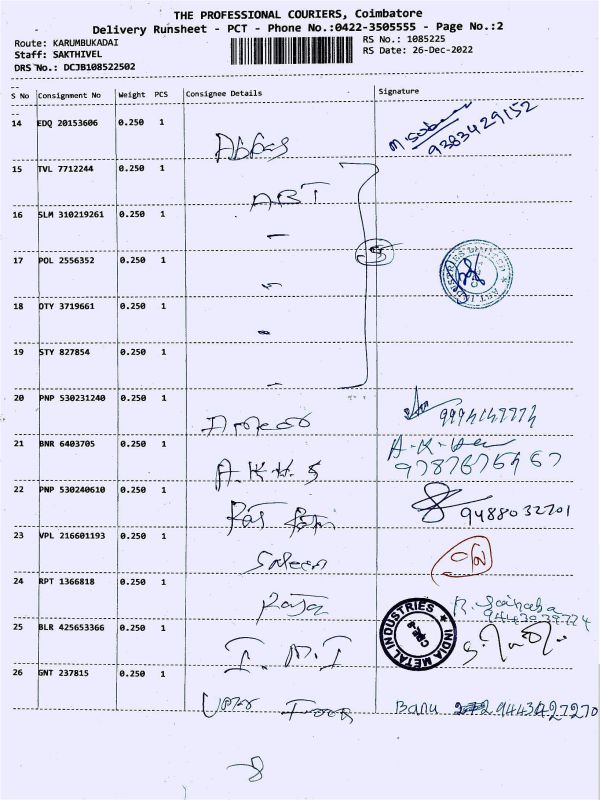 THE PROFESSIONAL COURIERS, Coimbatore
Delivery Runsheet - PCT - Phone No.:0422-3505555 - Page No.:2
Route: KARUMBUKADAI RS No.: 1085225
Staff: SAKTHIVEL RS Date: 26-Dec-2022
DRS No.: DCJB108522502
S No Consignment No Weight PCS Consignee Details Signature
14 EDQ 20153606 0.250 1 Abbas 9383429152
15 TVL 7712244 0.250 1 ART
16 SLM 310219261 0.250 1
17 POL 2556352 0.250 1 5
18 OTY 3719661 0.250 1
19 STY 827854 0.250 1
20 PNP 530231240 0.250 1
21 BNR 6403705 0.250 1 A.K.H.S
22 PNP 530240610 0.250 1 9488032701
23 VPL 216601193 0.250 1 Saleem
24 RPT 1366818 0.250 1 Raja
25 BLR 425653366 0.250 1 I.M.I INDIA METAL INDUSTRIES CBE-8
26 GNT 237815 0.250 1 Banu